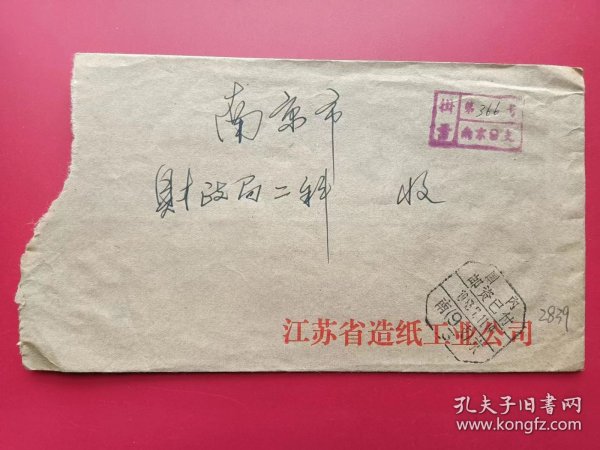 南京市
财政局二科 收
掛号
第366号
南京
国内
邮资已付
南(9)京
2839
江苏省造纸工业公司
孔夫子旧书网
www.kongfz.com